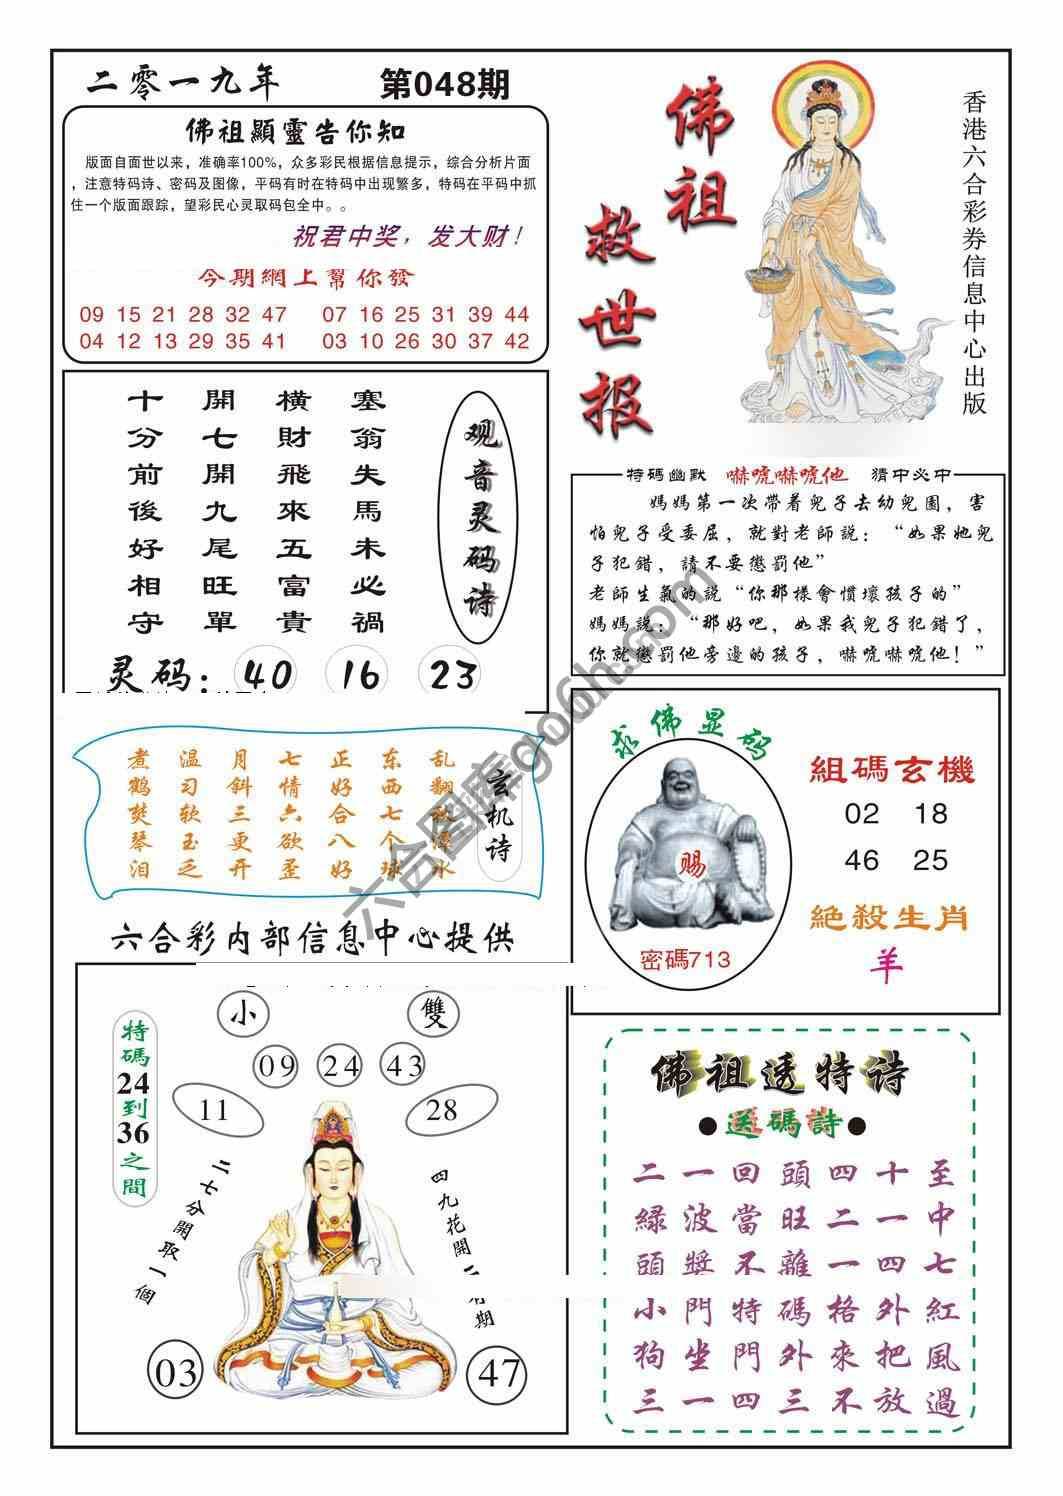 二零一九年
第048期
佛祖顯靈告你知
版面自面世以来，准确率100%，众多彩民根据信息提示，综合分析片面
，注意特码诗、密码及图像，平码有时在特码中出现繁多，特码在平码中抓
住一个版面跟踪，望彩民心灵取码包全中。。
祝君中奖，发大财！
今期網上幫你發
09 15 21 28 32 47 07 16 25 31 39 44
04 12 13 29 35 41 03 10 26 30 37 42
佛祖
救世报
香港六合彩券信息中心出版
十開橫塞
分七財翁
前開飛失
後九來馬
好尾五未
相旺富必
守單貴禍
观音灵码诗
灵码：40 16 23
特碼幽默 嚇唬嚇唬他 猜中必中
媽媽第一次帶着兒子去幼兒園，害
怕兒子受委屈，就對老師說：“如果她兒
子犯錯，請不要懲罰他”
老師生氣的說“你那樣會慣壞孩子的”
媽媽說：“那好吧，如果我兒子犯錯了，
你就懲罰他旁邊的孩子，嚇唬嚇唬他！”
煮温月七正东乱
鹤习斜情好西翻
焚软三六合七秋
琴玉更欲八个潭
泪乏开歪好球水
玄机诗
求佛显码
赐
密碼713
組碼玄機
02 18
46 25
絕殺生肖
羊
六合彩内部信息中心提供
小 雙
09 24 43
11 28
特碼24到36之間
二七分開取一個
四九花開
期
03 47
佛祖透特诗
●送碼詩●
二一回頭四十至
緑波當旺二一中
頭獎不離一四七
小門特碼格外紅
狗坐門外來把風
三一四三不放過
六合图库go6h.com